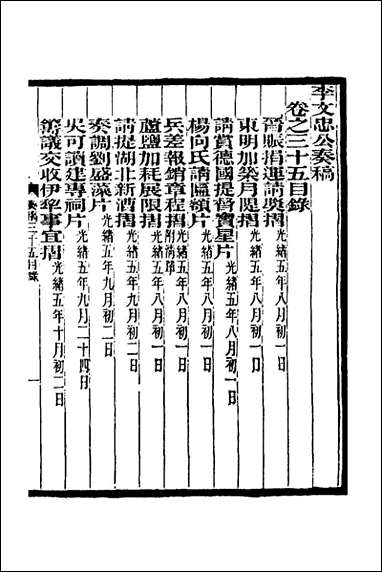 李文忠公奏稿
卷之三十五目錄
晉賑捐運請獎摺 光緒五年八月初一日
東明加築月隄摺 光緒五年八月初一日
請賞德國提督寶星片 光緒五年八月初一日
楊向氏請匾額片 光緒五年八月初一日
兵差報銷章程摺 附清單 光緒五年八月初一日
蘆鹽加耗展限摺 光緒五年八月初一日
請提湖北新酒摺 光緒五年九月初二日
奏調劉盛藻片 光緒五年九月初二日
吳可讀建專祠片 光緒五年九月二十四日
籌議交收伊犂事宜摺 光緒五年十月初二日
奏稿三十五目錄
一